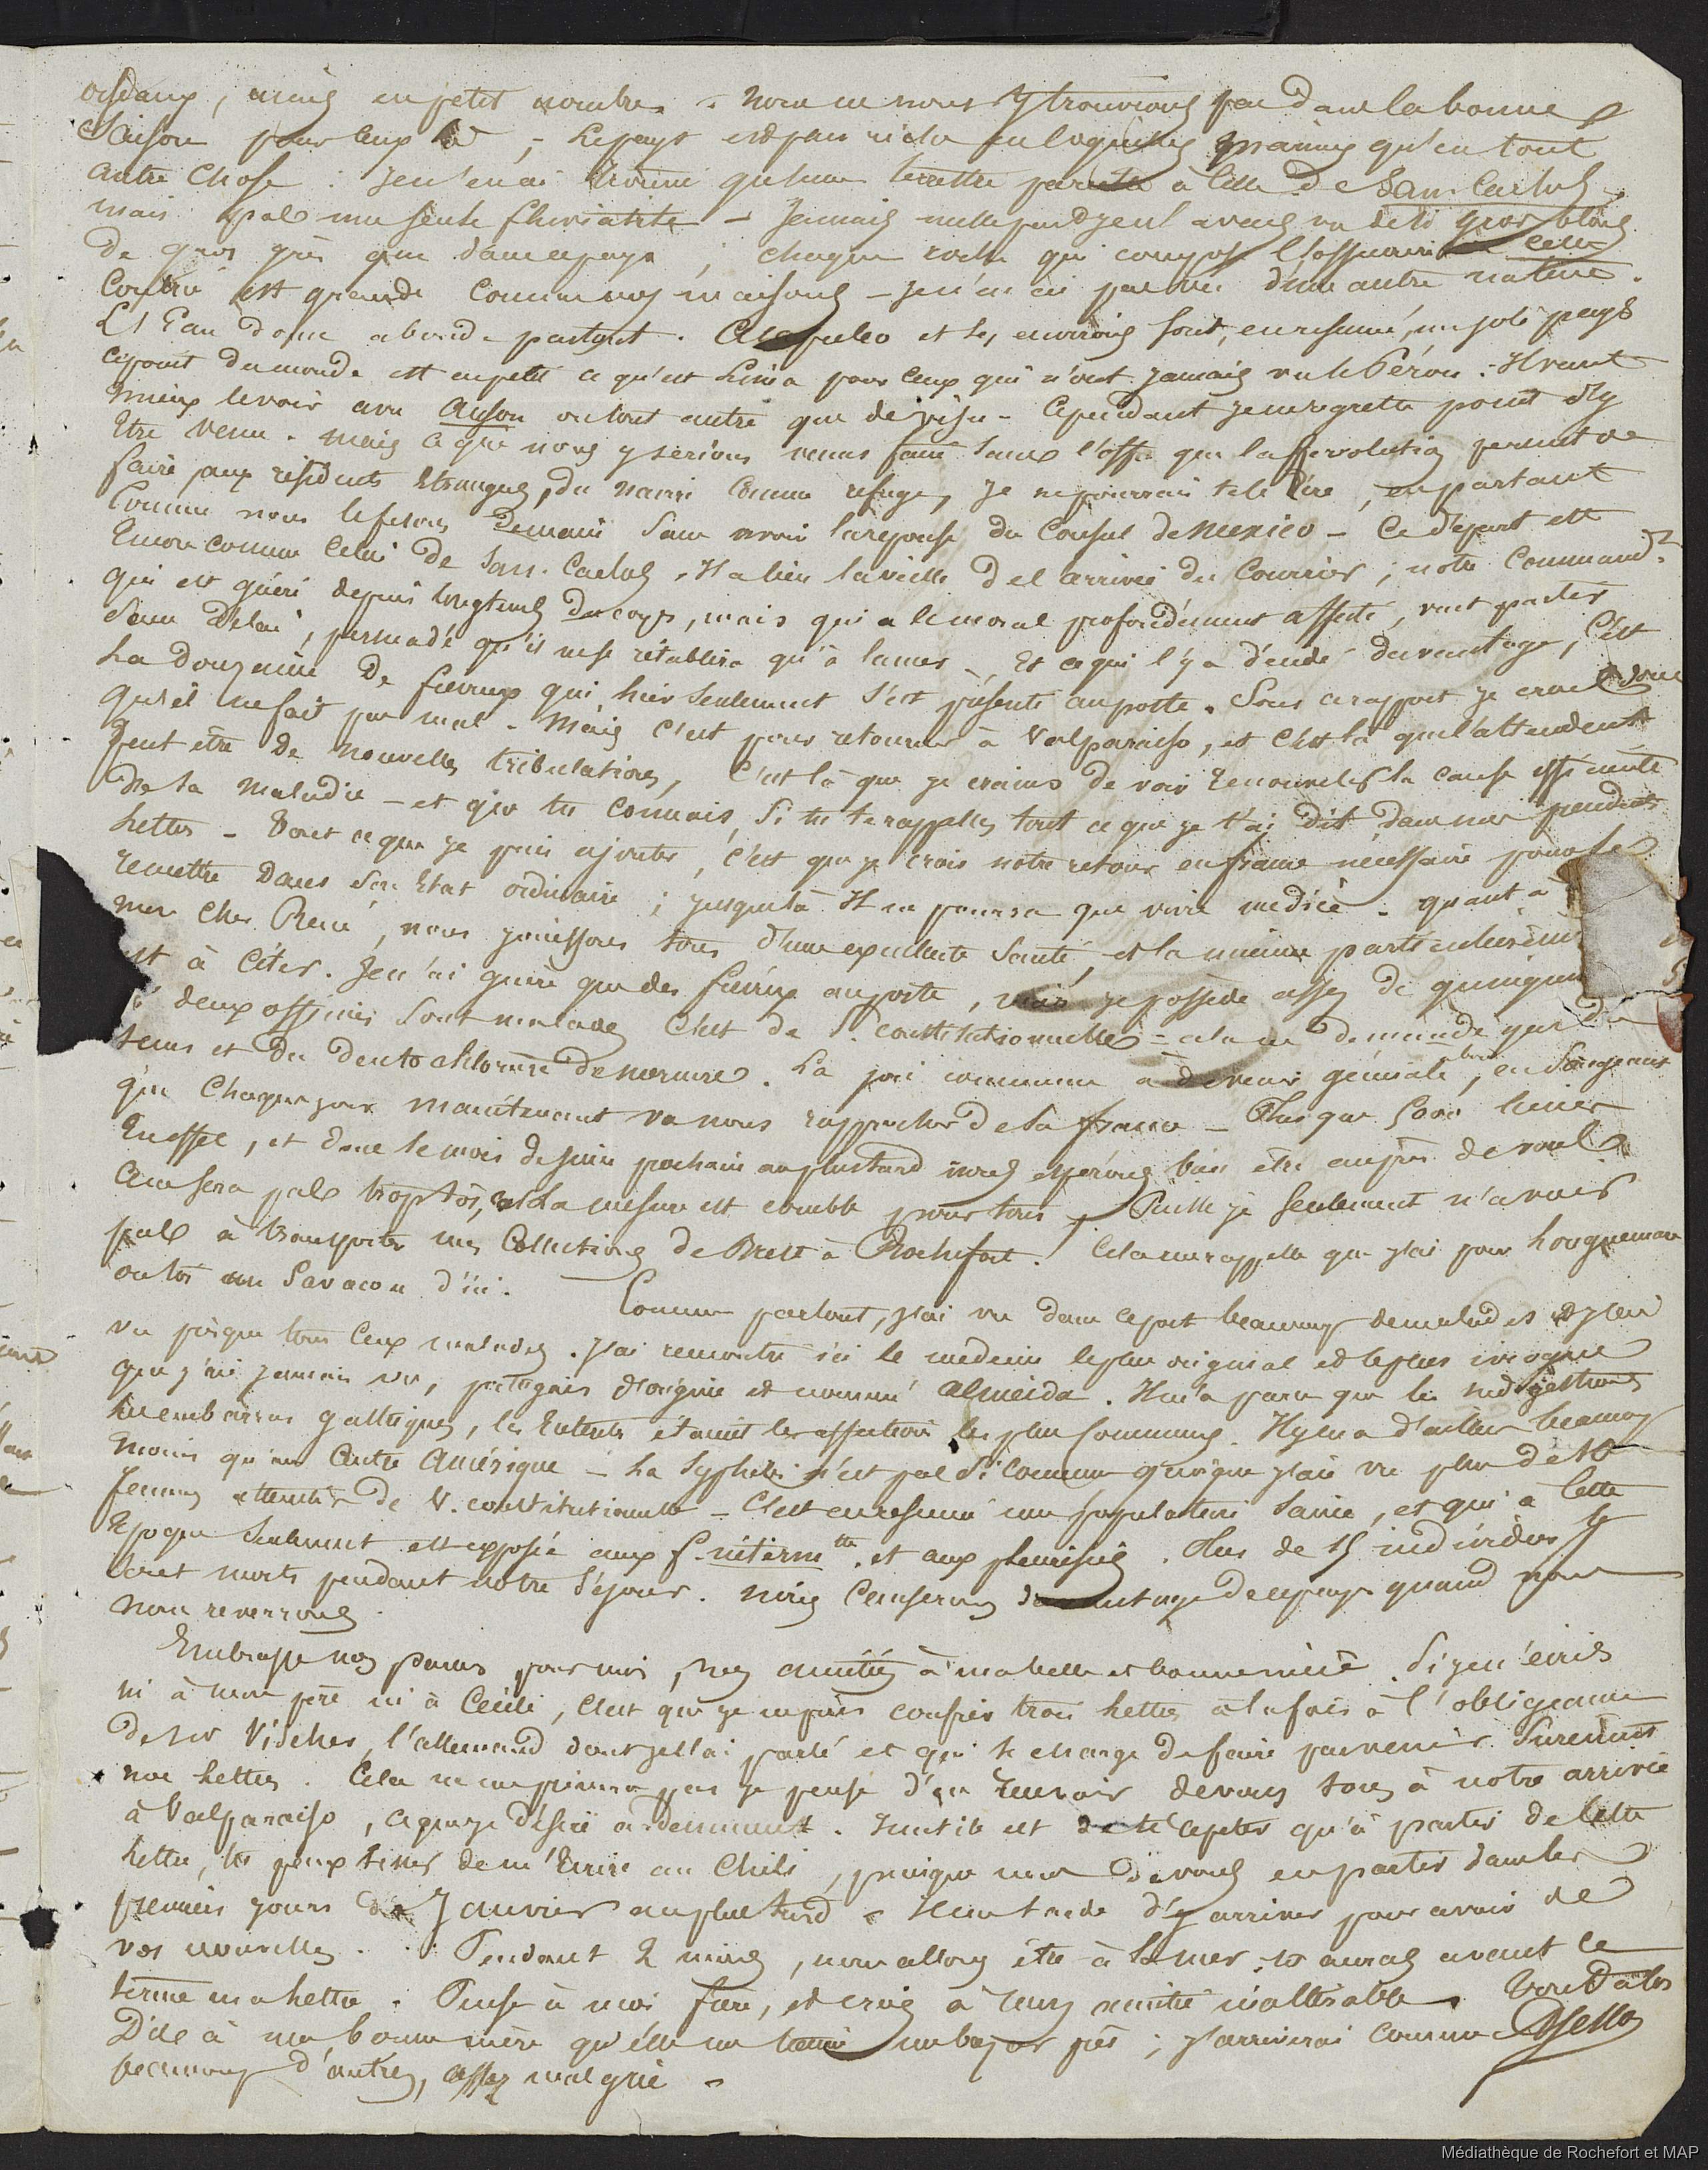 oiseaux, mais en petit nombre. - nous ne nous y trouvions pas dans la bonne
Saison pour eux - Le pays est plus riche en coquilles marines qu'en tout
autre chose : je n'en ai trouvé qu'une terrestre pareille à celle de San-Carlos
mais pas une seule fluviatile - Jamais nulle part je n'avais vu de si gros blocs
de gros grès que dans ce pays ; chaque roche qui compose l'ossuaire de cette
Contrée est grande comme nos maisons - je n'en ai pas vu d'une autre nature.
L'Eau douce abonde partout. Acapulco et les environs sont, en résumé, un joli pays
ce point du monde est en petit ce qu'est Lima pour ceux qui n'ont jamais vu le Pérou : Il vaut
mieux le voir avec Anson ou tout autre que de visu - Cependant je ne regrette point d'y
être venu. mais ce que nous y serions venus faire sans l'offre que la révolution permet de
faire aux résidents étrangers, du navire comme refuge, je ne pourrais te le dire, en partant
Comme nous le ferons demain sans avoir la réponse du Consul de Mexico - Ce départ est
Encore comme celui de San-Carlos. Il a lieu la veille de l'arrivée du Courrier ; notre Command.t
qui est guéri depuis longtemps du corps, mais qui a le moral profondément affecté, veut partir
Sans délai, persuadé qu'il ne se rétablira qu'à la mer - Et ce qui l'y a décidé davantage, c'est
La douzaine de fiévreux qui hier seulement s'est présenté au poste. Sous ce rapport je crois donc
qu'il ne fait pas mal - Mais c'est pour retourner à Valparaiso, et c'est là que l'attendent
peut être de nouvelles tribulations, c'est là que je crains de voir renouveler la cause efficiente
de sa maladie - et que tu connais, si tu te rappelles tout ce que je t'ai dit dans mes précédentes
Lettres - Tout ce que je puis ajouter, c'est que je crois notre retour en france nécessaire pour le
remettre dans son Etat ordinaire ; jusque là Il ne pourra que vivre médicé - quant à
mon cher René, nous jouissons tous d'une excellente santé, et la mienne particulièrement
est à citer. Je n'ai guère que des fiévreux au poste, mais je possède assez de quinquina
si deux officiers sont malades c'est de S. constitutionnelle - cela ne demande que du
tems et du deuto chlorure de mercure. La joie commence à devenir générale à bord, en songeant
que chaque jour maintenant va nous rapprocher de la france - Plus que 5000 lieues
En effet, et dans le mois de juin prochain au plus tard nous espérons bien être auprès de vous.
Ce ne sera pas trop tôt, la mesure est comble pour tous. Puissé-je seulement n'avoir
pas à transporter mes Collections de Brest à Rochefort. Cela me rappelle que j'ai pour
ou toi un Savacou d'ici. Comme partout, j'ai vu dans ce port beaucoup de malades et j'en ai
vu presque tous ceux malades. J'ai rencontré ici le médecin le plus original et le plus ivrogne
que j'aie jamais vu, portugais d'origine et nommé Almeida. Il m'a paru que les indigestions
les embarras gastriques, les Entérites étaient les affections les plus communes. Il y en a d'ailleurs beaucoup
moins qu'en autre Amérique - La Syphilis n'est pas si commune quoique j'aie vu plus de 10
femmes atteintes de V. constitutionnelle - C'est en résumé une population saine, et qui à cette
Epoque seulement est exposée aux f. interm.ttes et aux pleurésies. Plus de 15 individus y
sont morts pendant notre séjour. nous causerons davantage de ce pays quand nous
nous reverrons.
Embrasse nos parens pour moi, mes amitiés à ma belle et bonne mère. Si je n'écris
ni à mon père ni à Cécile, c'est que je ne puis confier trois lettres à la fois à l'obligeance
de Mr Vischer, l'allemand dont je t'ai parlé et qui se charge de faire parvenir Surement
nos lettres. Cela ne m'empêchera pas je pense d'en recevoir de vous tous à notre arrivée
à Valparaiso, ce que je désire ardemment. Inutile est de te répéter qu'à partir de cette
lettre, tu peux cesser de m'écrire au Chili, puisque nous devons en partir dans les
premiers jours de Janvier au plus tard - Il me tarde d'y arriver pour avoir de
vos nouvelles. Pendant 2 mois, nous allons être à la mer. tu auras avant ce
terme ma lettre. Pense à moi frère, et crois à mon amitié inaltérable. Tout à toi
Dis à ma bonne mère qu'elle me tienne un baiser prêt ; j'arriverai comme
beaucoup d'autres, assez maigre -
Médiathèque de Rochefort et MAP